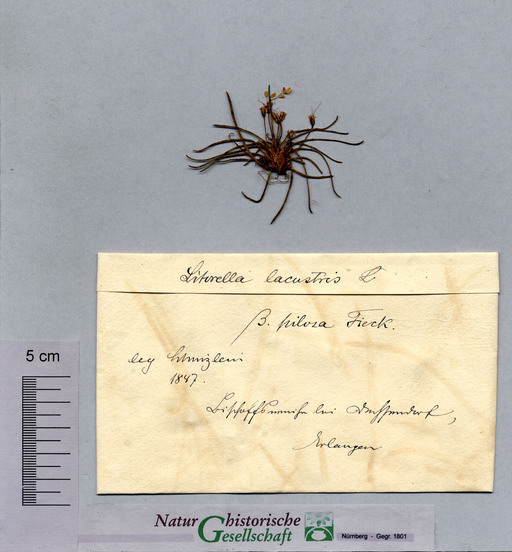 Litorella lacustris L
β. pilosa Fieck.
leg Schnizlein
1847.
bei Dechsendorf,
Erlangen
5 cm
Naturhistorische
Gesellschaft
Nürnberg - Gegr. 1801